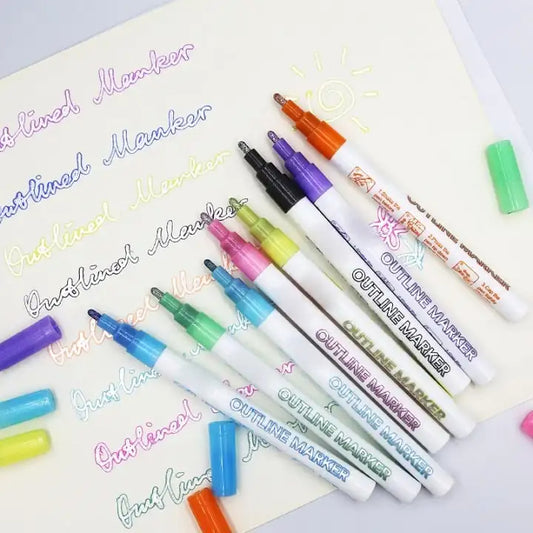 Outlined Marker
Outlined Marker
Outlined Marker
Outlined Marker
Outlined Marker
Outlined
Outlined Marker
Outlined
OUTLINE MARKER
OUTLINE MARKER
OUTLINE MARKER
OUTLINE MARKER
OUTLINE MARKER
OUTLINE MARKER
OUTLINE MARKER
OUTLINE MARKER